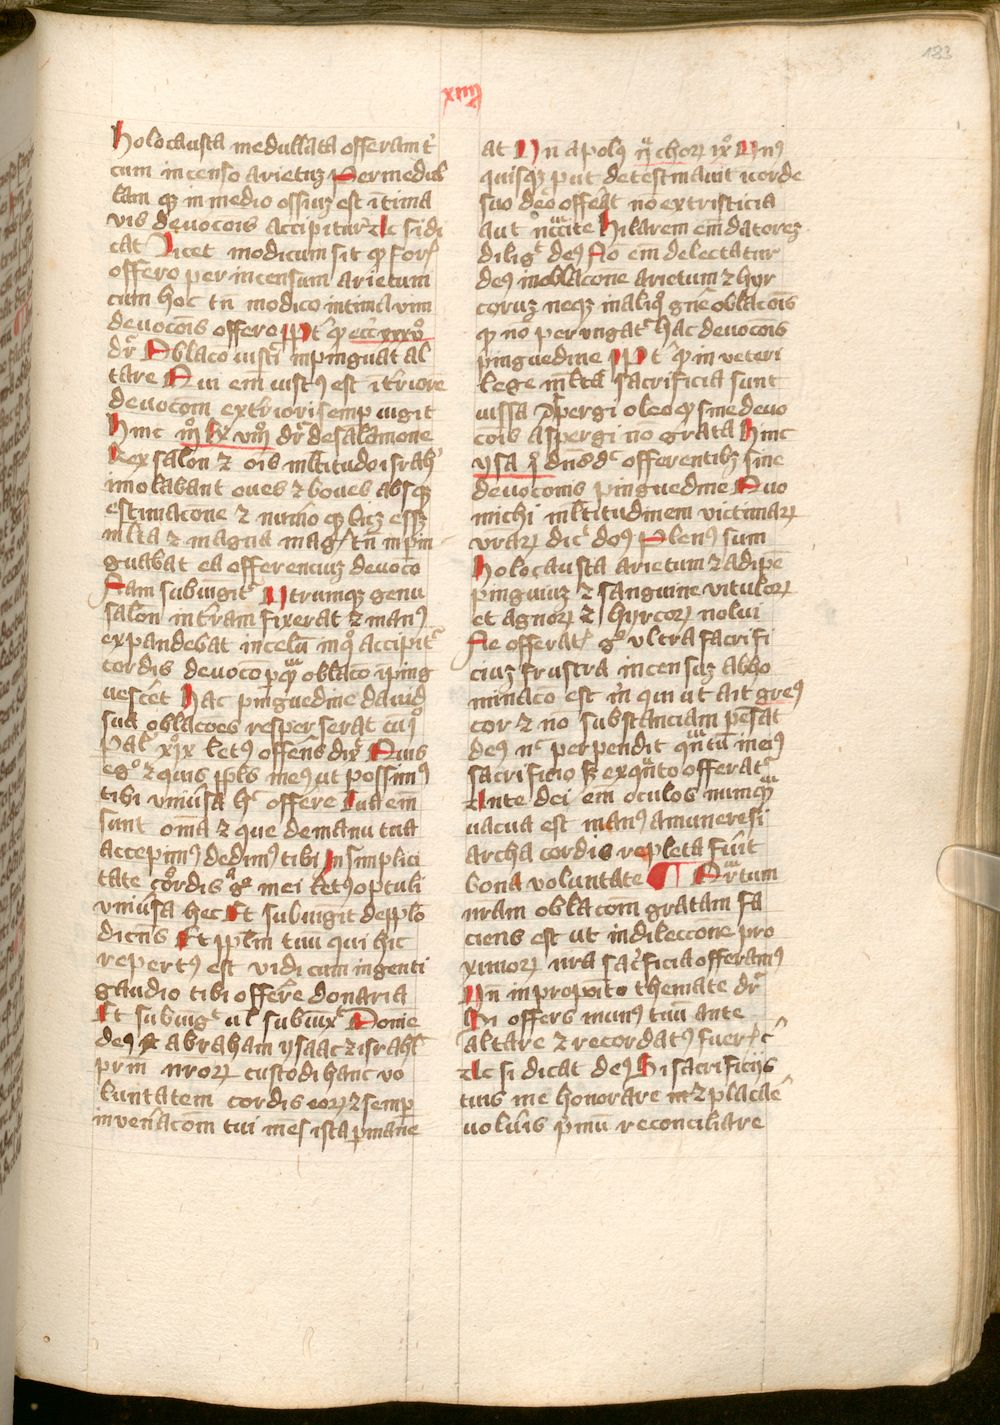 183
xiiij
holocausta medullata offeram t'
cum incenso arietuz Per medul
lam qz in medio ossiuz est intima
vis deuocois accipitur Ac si di
cat licet modicum sit qd foris
offero per incensum arietum
cum hoc tn modico intima vim
deuocois offero Pt qd ecci xxxvo
dr Oblaco iusti inpinguat al
tare Qui em iustus est interiore
deuocom exteriori semp iungit
Hinc iijo Re viijo dr de salamone
Rex salon et ois multitudo israhel
imolabant oues et boues absqz
estimacone et numero qd licz essz
multa et magna mags tn inpin
guabat ea offerenciuz deuoco
Nam subiungitr Utrumqz genu
salon in terram fixerat et manus
expandebat in celum in quo accipitr
cordis deuoco per qua oblaco inping
uescet Hac pinguedine dauid
sua oblacoes resperserat cum
Pal xxix letus offerens dixit Quis
ego et quis ppls meus ut possimus
tibi vniuersa hec offere Tua em
sunt oma et que de manu tua
accepimus dedimus tibi In simplici
tate cordis mei letus optuli
vniuersa hec Et subiungit de pplo
dicens Et pplm tuum qui hic
repertus est vidi cum ingenti
gaudio tibi offerre donaria
Et subiungit ul subinxit Domine
deus abraham ysaac et israhel
prm nrorum custodi hanc vo
luntatem cordis eorum et semp
in veneracom tui mens ista permane
at Un apolus ij chorum ixo Unus
quisqz put destinauit corde
suo deo offerat no ex tristicia
aut necitate Hilarem em datorez
diligit deus No em delectatur
deus in oblacone arietum et hyr
coruz neqz in aliquo gne oblacois
qd no perungatr hac deuocois
pinguedine Pt qd in veteri
lege multa sacrificia sunt
iussa aspergi oleo qd sine deuo
cois aspergi no grata Hinc
ysa dns dt offerentibz sine
deuocois pinguedine Quo
michi multitudinem victimarum
vrarum dic dns Plenus sum
holocausta arietum et adipe
pinguiuz et sanguine vitulorum
et agnorum et hyrcorum nolui
Ne offeratis go vltra sacrifi
ciuz frustra incensuz abho
minaco est in qui ut ait gregs
cor et no substanciam pensat
deus nec perpendit quantum in eius
sacrificio sz ex quanto offeratr
Ante dei em oculos numquam
vacua est manus a munere si
archa cordis repleta fuit
bona voluntate Quartum
nram oblacom gratam fa
ciens est ut in dileccone pro
ximorum nra sacrificia offeramus
Un in proposito themate dr
Si offers munus tuum ante
altare et recordatus fueris etc
Ac si dicat deus Si sacrificijs
tuis me honorare intz placare
volueris primum reconciliare